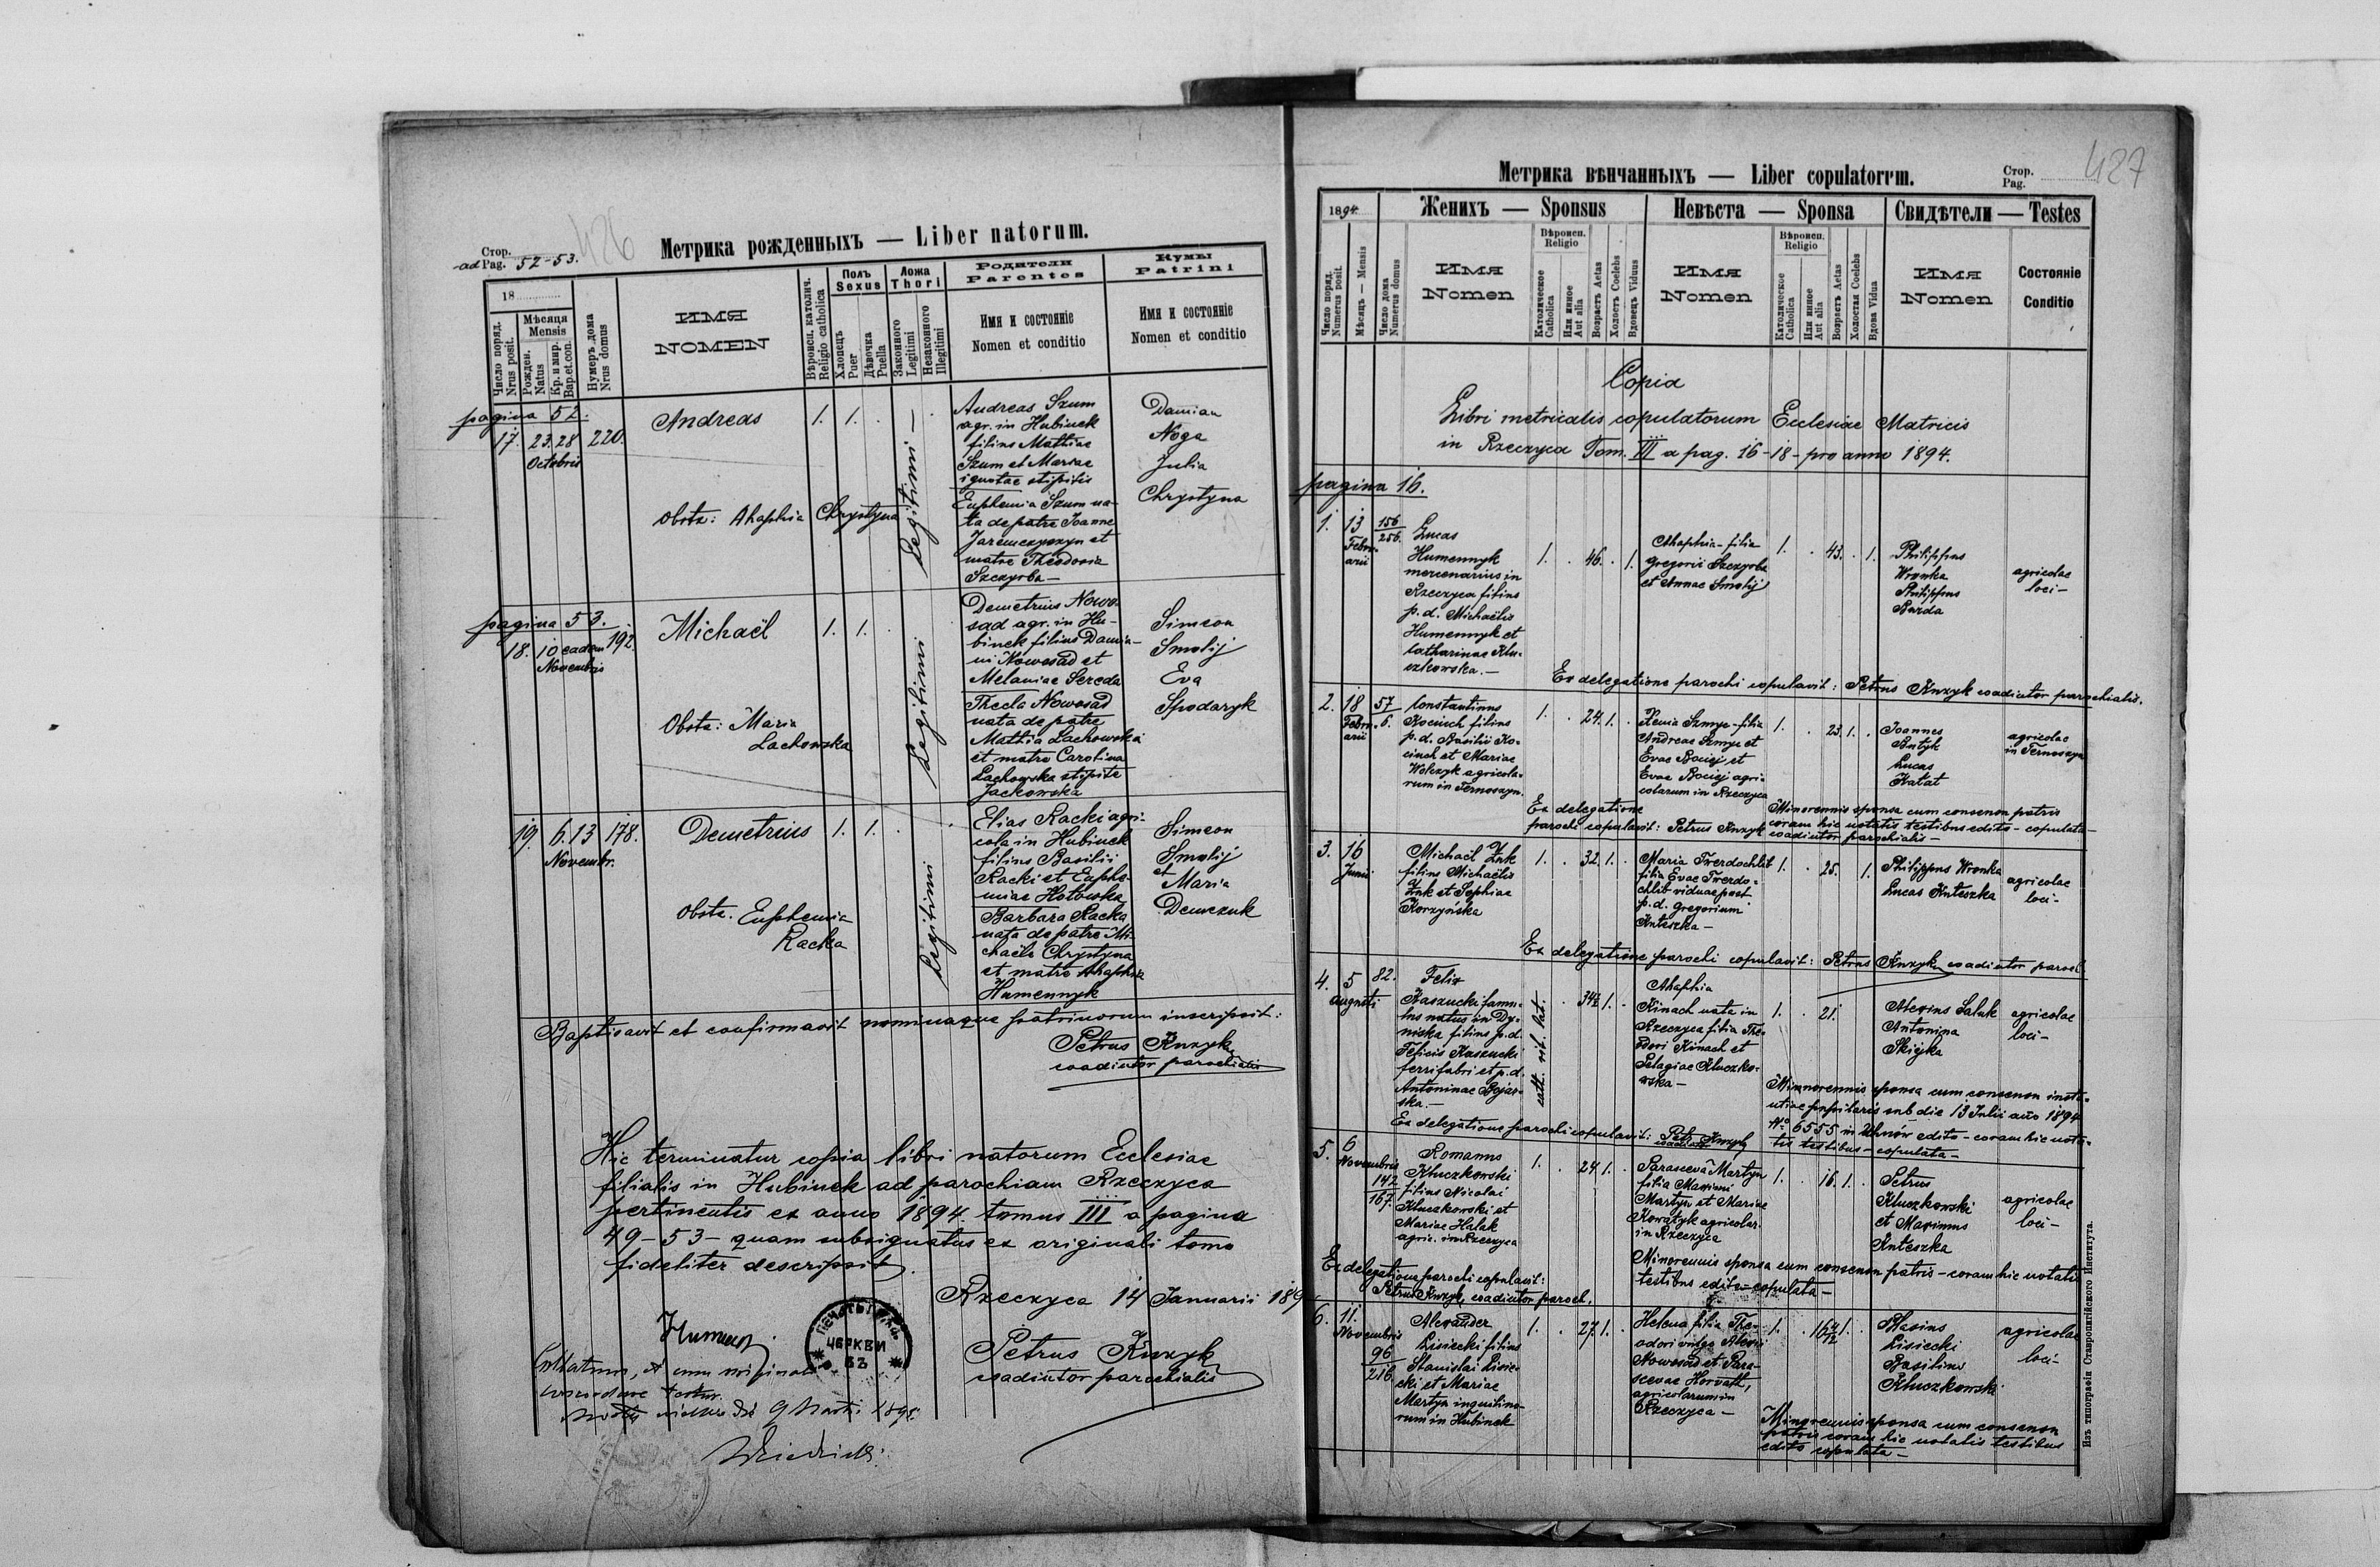 426
Метрика рожденныхъ — Liber natorum.
Стор.
ad Pag. 52-53.
18
Число поряд.
Nrus posit.
Мѣсяця
Mensis
Рожден.
Natus
Кр. и мир.
Bap.et.con.
Нумеръ дома
Nrus domus
ИМЯ
NOMEN
Вѣроисп. католич.
Religio catholica
Полъ
Sexus
Хлопецъ
Puer
Дѣвочка
Puella
Ложа
Thori
Законного
Legitimi
Незаконного
Illegitimi
Родители
Parentes
Имя и состоянiе
Nomen et conditio
Кумы
Patrini
Имя и состоянiе
Nomen et conditio
pagina 52.
17. 23. 28 220.
Octobris
Andreas
1. 1. .
Legitimi —
obstz: Ahaphia Chrystyna
Andreas Szum
agr. in Hubinek
filius Mathiae
Szum et Mariae
ignotae stipitis
Euphemia Szum na-
ta de patre Joanne
et
matre Theodosia
Szczyrba —
Damian
Noga
Julia
Chrystyna
pagina 53.
18. 10 eadem 192.
Novembris
Michaël
1. 1. .
Legitimi
Obstz: Maria
Lachowska
Demetrius Nowo-
sad agr. in Hu-
binek filius Damia-
ni Nowosad et
Melaniae Sereda
Thecla Nowosad
nata de patre
Mathia Lachowski
et matre Carolina
Lachowska stipite
Jackowska
Simeon
Smolij
Eva
Spodaryk
19. 6. 13 178.
Novembr.
Demetrius
1. 1. .
Legitimi
Obstz. Euphemia
Racka
Elias Racki agri-
cola in Hubinek
filius Basilii
Racki et Euphe-
miae Hotowska
Barbara Racka
nata de patre Mi-
chaële Chrystyna
et matre Ahaphia
Humennyk
Simeon
Smolij
et
Maria
Demczuk
Baptisavit et confirmavit nominaque patrinorum inscripsit:
Petrus Knzyk
coadiutor parochialis
Hic terminatur copia libri natorum Ecclesiae
filialis in Hubinek ad parochiam Rzeczyca
pertinentis ex anno 1894. tomus III a pagina
49-53- quam subsignatus ex originali tomo
fideliter descripsit.
Rzeczyca 14 Januarii 189
Petrus Knzyk
coadiutor parochialis
ЦЕРКВИ
ВЪ
cum originali
concordare
9
427
Метрика вѣнчанныхъ — Liber copulatorum.
Стор.
Pag.
1894.
Женихъ — Sponsus
Невѣста — Sponsa
Свидѣтели — Testes
Число поряд.
Numerus posit.
Мѣсяць — Mensis
Число дома
Numerus domus
ИМЯ
Nomen
Вѣроисп.
Religio
Католическое
Catholica
Или инное
Aut alia
Возрастъ Aetas
Холостъ Coelebs
Вдовецъ Viduus
ИМЯ
Nomen
Вѣроисп.
Religio
Католическое
Catholica
Или инное
Aut alia
Возрастъ Aetas
Холостая Coelebs
Вдова Vidua
ИМЯ
Nomen
Состоянiе
Conditio
Copia
Libri metricalis copulatorum Ecclesiae Matricis
in Rzeczyca Tom. III a pag. 16-18- pro anno 1894.
pagina 16.
1. 13
Febru-
arii
156
256.
Lucas
Humennyk
mercenarius in
Rzeczyca filius
p. d. Michaëlis
Humennyk et
Catharinae Klu-
czkowska. —
1. . 46. . 1.
Ahaphia - filia
Gregorii Szczyrba
et Annae Smolij
1. . 43. . 1.
Philippus
Wronka
Philippus
Burda
agricolae
loci —
Ex delegatione parochi copulavit: Petrus Knzyk coadiutor parochialis.
2. 18
Febru-
arii
57
6.
Constantinus
Kociuch filius
p. d. Basilii Ko-
ciuch et Mariae
Welczyk agricola-
rum in Ternoszyn.
1. . 24. 1. .
Xenia Szmyc - filia
Andreae Szmyc et
Evae Bociej et
Evae Bociej agri-
colarum in Rzeczyca
1. . 23. 1. .
Joannes
Butyk
Lucas
Hatat
agricolae
in Ternoszyn
Minorennis sponsa cum consensu patris
coram hic notatis testibus edito - copulata —
Ex delegatione
parochi copulavit: Petrus Knzyk coadiutor parochialis —
3. 16
Junii
Michaël Żuk
filius Michaëlis
Żuk et Sophiae
Korzyńska
1. . 32. 1. .
Maria Twerdochlib
filia Evae Twerdo-
chlib viduae post
p. d. Gregorium
Kuteszka —
1. . 25. 1.
Philippus Wronka
Lucas Kuteszka
agricolae
loci -
Ex delegatione parochi copulavit: Petrus Knzyk coadiutor paroch.
4. 5
Augusti
82.
Felix
Kaszucki famu-
lus natus in Dy-
niska filius p. d.
Felicis Kaszucki
ferrifabri et p. d.
Antoninae Bojar-
ska. —
cath. rit. lat.
34 1. .
Ahaphia
Kinach nata in
Rzeczyca filia The-
odori Kinach et
Pelagiae Kluczko-
wska —
1. . 21.
Alexius Saluk
Antonina
Skiejka
agricolae
loci —
Minorennis sponsa cum consensu insta-
ntiae pupilaris sub die 13 Julii año 1894
No 6555 in Uhnów edito - coram hic nota-
tis testibus - copulata —
Ex delegatione parochi copulavit: Petr. Knzyk
5. 6
Novembris
142
167.
Romanus
Kluczkowski
filius Nicolai
Kluczkowski et
Mariae Halak
agric. in Rzeczyca
1. . 24 1. .
Parasceva Martyn
filia Maximi
Martyn et Mariae
Kowatyk agricolar.
in Rzeczyca
1. . 16. 1. .
Petrus
Kluczkowski
et Maximus
Kuteszka
agricolae
loci —
Minorennis sponsa cum consensu patris - coram hic notatis
testibus edito - copulata —
Ex delegatione parochi copulavit:
Petrus Knzyk coadiutor paroch.
6. 11.
Novembris
96
216.
Alexander
Lisiecki filius
Stanislai Lisie-
cki et Mariae
Martyn inquilino-
rum in Hubinek
1. . 27. 1. .
Helena filia The-
odori vulgo Alexii
Nowosad et Para-
scevae Horvath,
agricolarum in
Rzeczyca —
1. . 16 1. .
Blasius
Lisiecki
Basilius
Kluczkowski
agricolae
loci -
Minorennis sponsa cum consensu
patris coram hic notatis testibus
edito copulata —
Изъ типографiи Ставропигiйского Института.